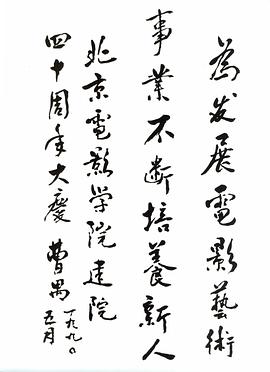 為发展電影藝術
事業不断培養新人
北京電影学院建院
四十周年大慶 曹禺
一九九〇
五月